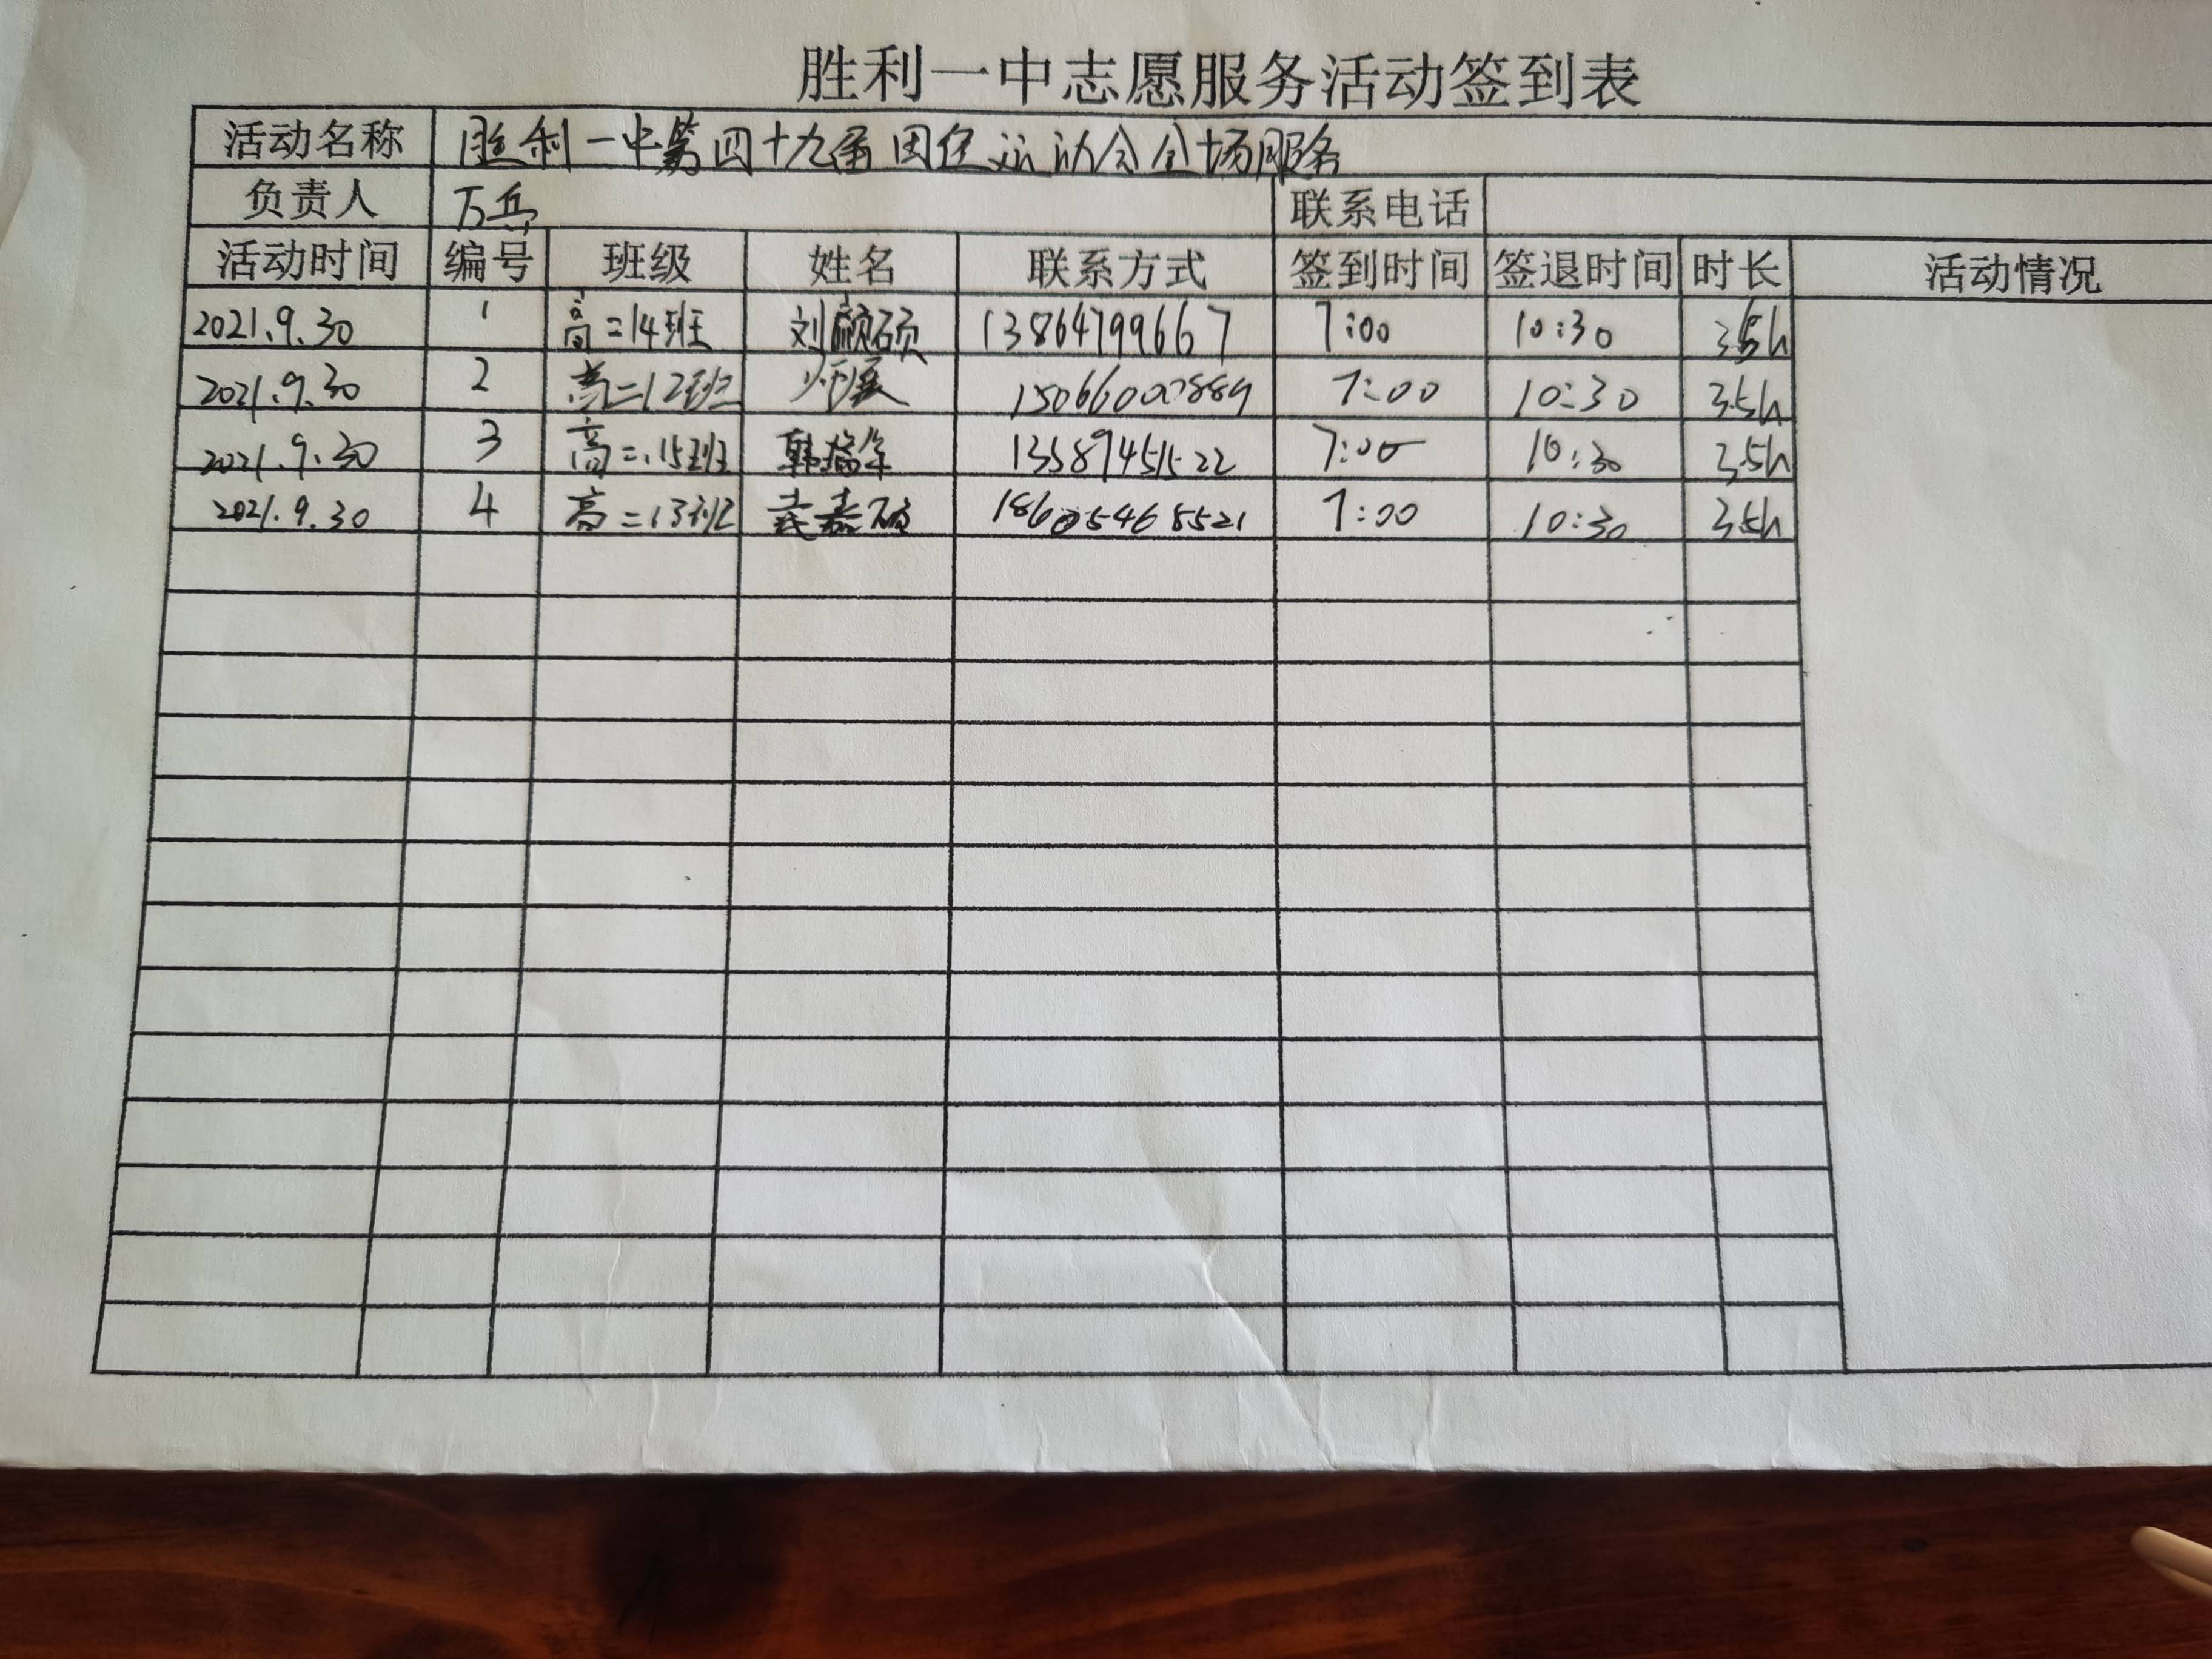 胜利一中志愿服务活动签到表
活动名称 胜利一中第四十九届田径运动会全场服务
负责人 万兵 联系电话
活动时间 编号 班级 姓名 联系方式 签到时间 签退时间 时长 活动情况
2021.9.30 1 高二14班 刘颜硕 13864799667 7:00 10:30 3.5h
2021.9.30 2 高二12班 7:00 10:30 3.5h
2021.9.30 3 高二15班 13589451522 7:00 10:30 3.5h
2021.9.30 4 高二13班 18605468521 7:00 10:30 3.5h